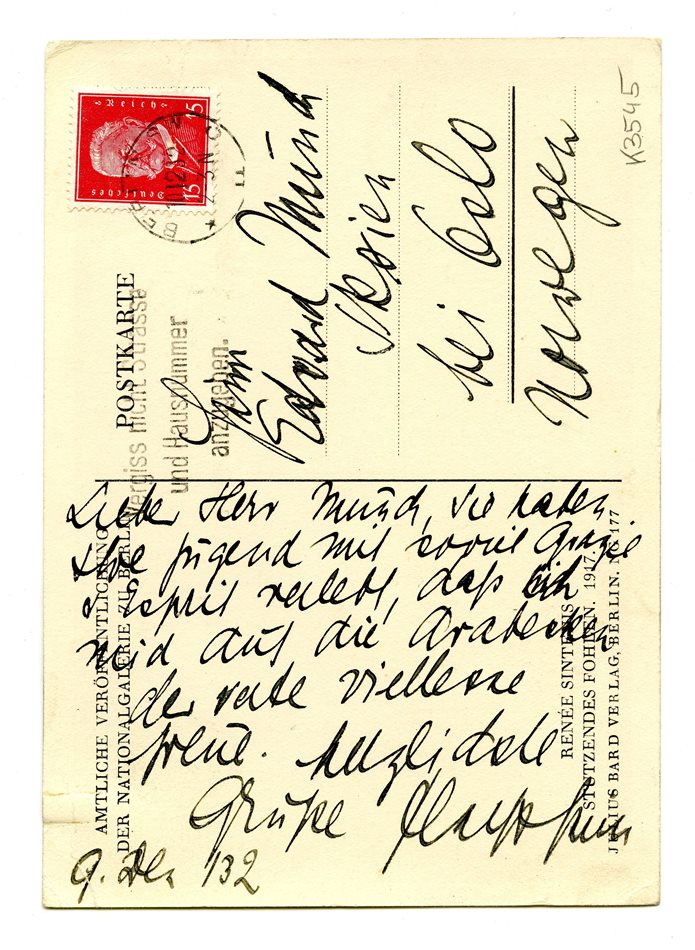 Deutsches Reich
15 15
BERLIN
10.12.32
POSTKARTE
Vergiss nicht Strasse
und Hausnummer
anzugeben.
Herrn
Edvard Munch
Skøien
bei Oslo
Norwegen
K3545
Lieber Herr Munch, Sie haben
Ihre Jugend mit soviel Grazie
u Esprit verlebt, daß ich
mich auf die Arabesken
der verte Viellesse
freue. Herzlichste
Grüße
9. Dez 132
AMTLICHE VERÖFFENTLICHUNG
DER NATIONALGALERIE ZU BERLIN
RENÉE SINTENIS
STÜTZENDES FOHLEN. 1917.
JULIUS BARD VERLAG, BERLIN. No. 177